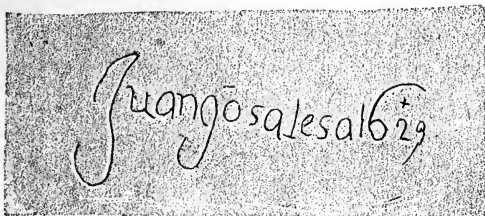 Juangōsalesal629